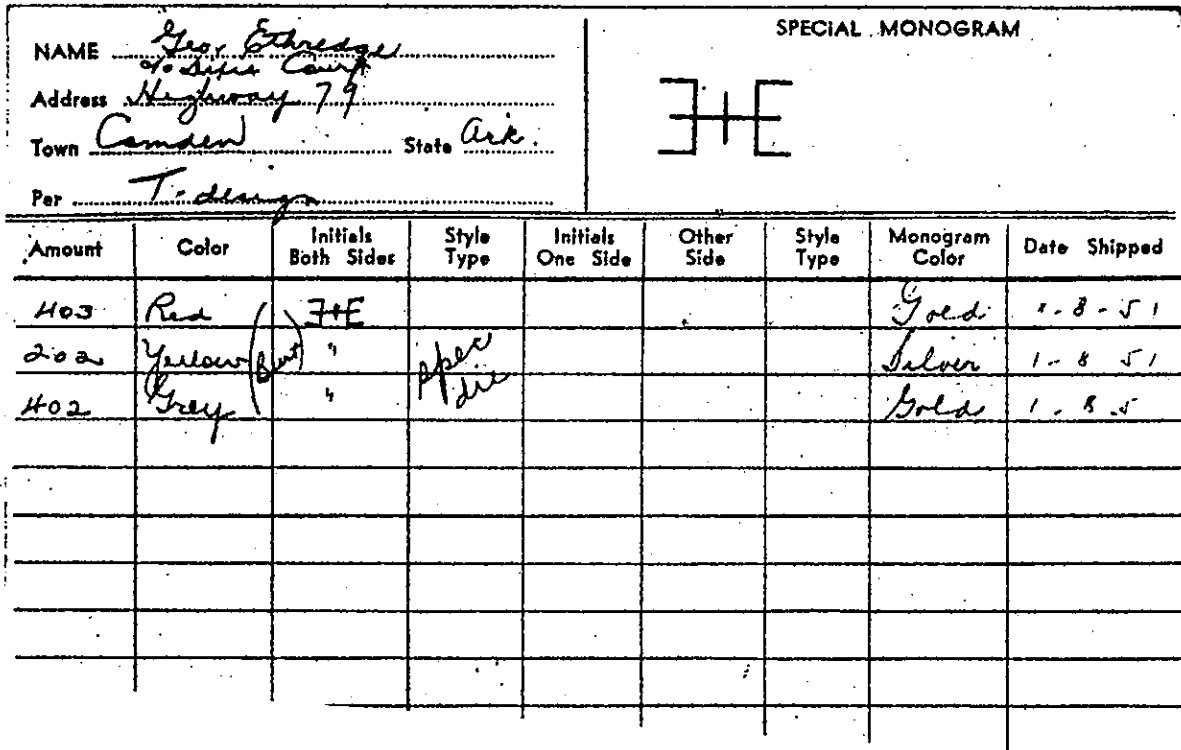 SPECIAL MONOGRAM
NAME Geo. Ethredge
% Sifes Court
Address Highway 79
Town Camden State Ark.
Per T-design
Amount Color Initials Both Sides Style Type Initials One Side Other Side Style Type Monogram Color Date Shipped
403 Red Ǝ+E Gold 1-8-51
202 Yellow " spec die Silver 1-8 51
402 Grey " Gold 1-8-5